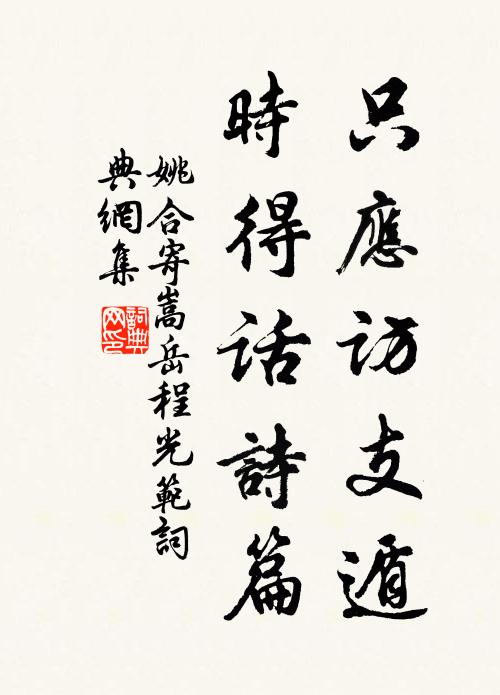 只應访支遁
時得话詩篇
姚合寄嵩岳程光範詞
典網集
詞典
网印